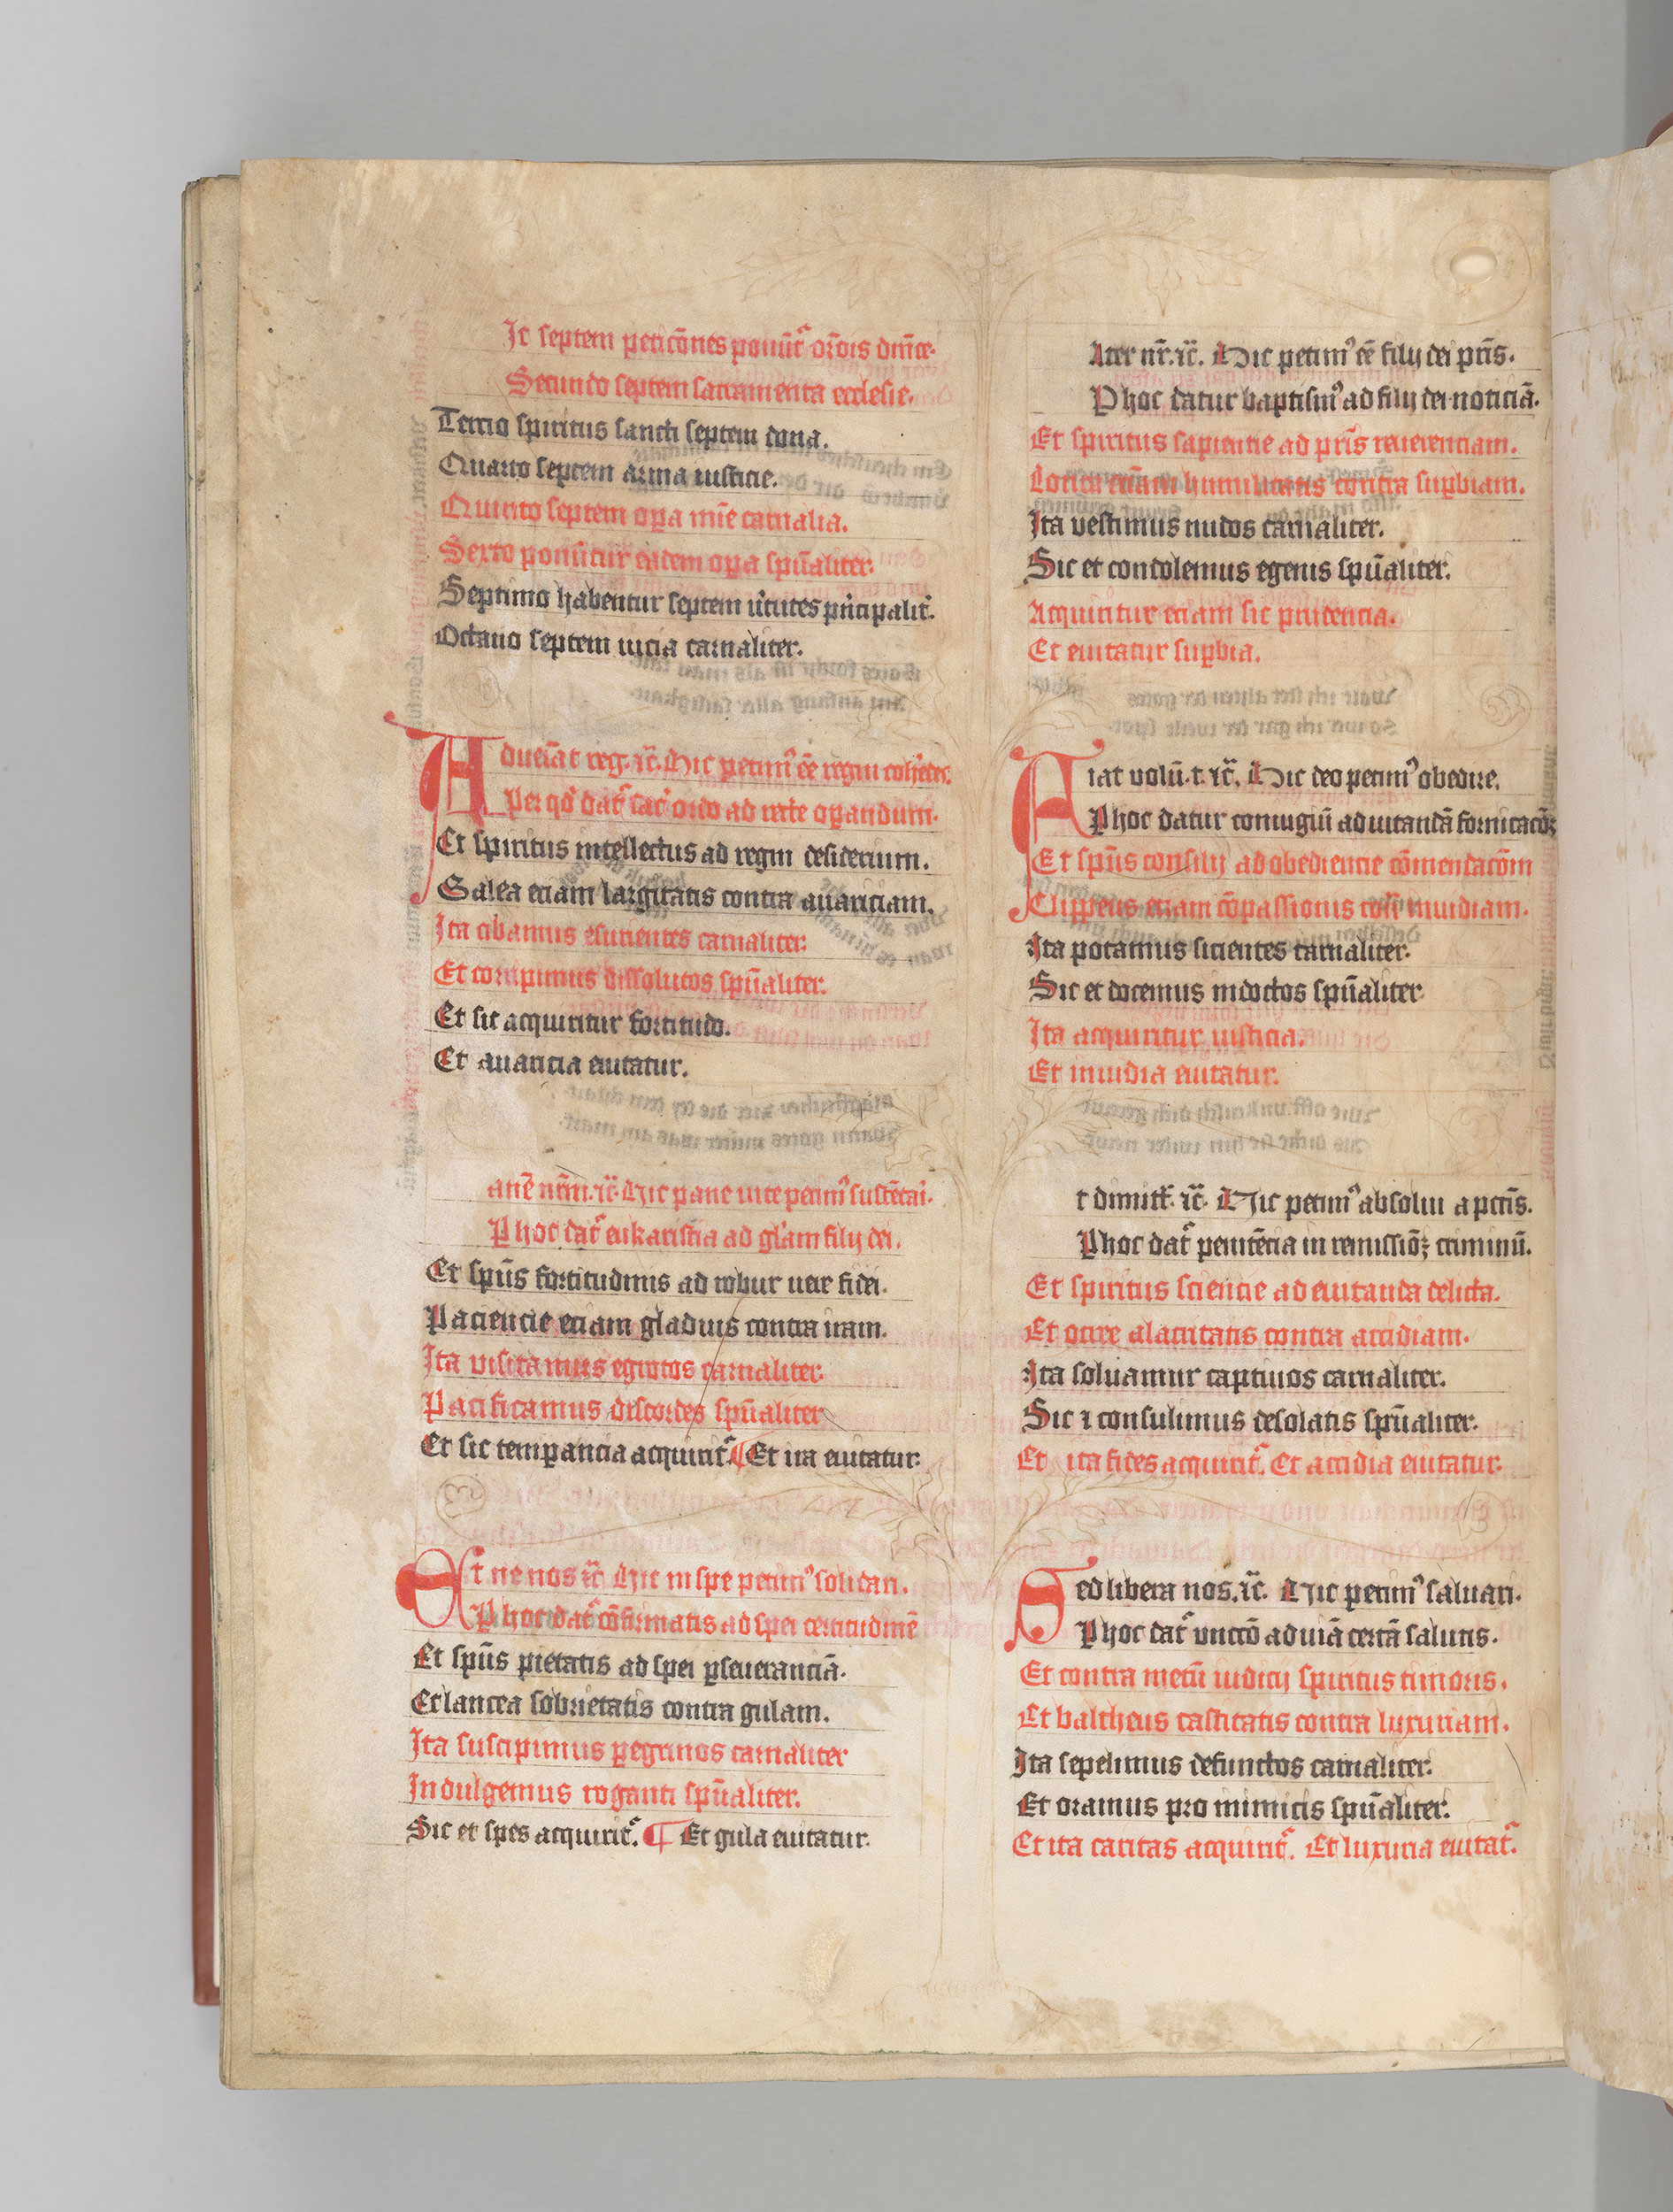 Ic septem peticōnes ponūt᷑ or̄ois dnīce.
Secundo septem sacramenta ecclesie.
Tercio spiritus sancti septem dona.
Quarto septem arma iusticie.
Quinto septem oꝑa mīe carnalia.
Sexto ponūtur eidem oꝑa spūaliter.
Septimo habentur septem v̓tutes pͥncipalit᷑.
Octauo septem uicia carnaliter.
Adueīat reg. ⁊c̄. Hic petimꝰ ēē regni
Per qd̓ dat᷑ sac̓ ordo ad recte oꝑandum.
Et spiritus intellectus ad regni desiderium.
Galea eciam largitatis contra auariciam.
Ita cibamus esurientes carnaliter.
Et corripimus dissolutos spūaliter.
Et sic acquiritur fortitudo.
Et auaricia euitatur.
anē nr̄m. ⁊c̄. Hic pane uite petimꝰ sustētari.
Phoc dat᷑ eukaristia ad gl̓am filij dei.
Et spūs fortitudinis ad robur uere fidei.
Paciencie eciam gladius contra iram.
Ita visitamus egrotos carnaliter.
Pacificamus discordes spūaliter
Et sic temꝑancia acquirit᷑. ¶ Et ira euitatur.
Et ne nos ⁊c̄ Hic in spe petimꝰ solidari.
Phoc dat᷑ cōfirmatis ad spei certitudinē
Et spūs pietatis ad spei ꝑseueranciā.
Et lancea sobrietatis contra gulam.
Ita suscipimus ꝑegrinos carnaliter
Indulgemus roganti spūaliter.
Sic et spes acquirit᷑. ¶ Et gula euitatur.
Ater nr̄. ⁊c̄. Hic petimꝰ ēē filij dei pr̄is.
Phoc datur baptismꝰ ad filij dei noticiā.
Et spiritus sapientie ad pr̄is reuerenciam.
Lorica eciam humilitatis contra suꝑbiam.
Ita vestimus nudos carnaliter.
Sic et condolemus egenis spūaliter.
Acquiritur eciam sic prudencia.
Et euitatur suꝑbia.
Fiat volū. t. ⁊c̄. Hic deo petimꝰ obedire.
Phoc datur coniugiū ad uitandā fornicacōꝫ
Et spūs consilij ad obediencie cōmendacōm
Clippeus eciam cōpassionis cont᷑ inuidiam.
Ita potamus sicientes carnaliter.
Sic et docemus indoctos spūaliter
Ita acquiritur iusticia.
Et inuidia euitatur.
t dimitt̄. ⁊c̄. Hic petimꝰ absolui a pctīs.
Phoc dat᷑ penitēcia in remissiōꝫ criminū.
Et spiritus sciencie ad euitanda delicta.
Et ocree alacritatis contra accidiam.
Ita soluamur captiuos carnaliter.
Sic ⁊ consulimus desolatis spūaliter.
Et ita fides acquirit᷑. Et accidia euitatur.
Sed libera nos. ⁊c̄. Hic petimꝰ saluari.
Phoc dat᷑ vnctō ad uiā certā salutis.
Et contra metū iudicij spiritus timoris.
Et baltheus castitatis contra luxuriam.
Ita sepelimus defunctos carnaliter.
Et oramus pro inimicis spūaliter.
Et ita caritas acquirit᷑. Et luxuria euitat᷑.